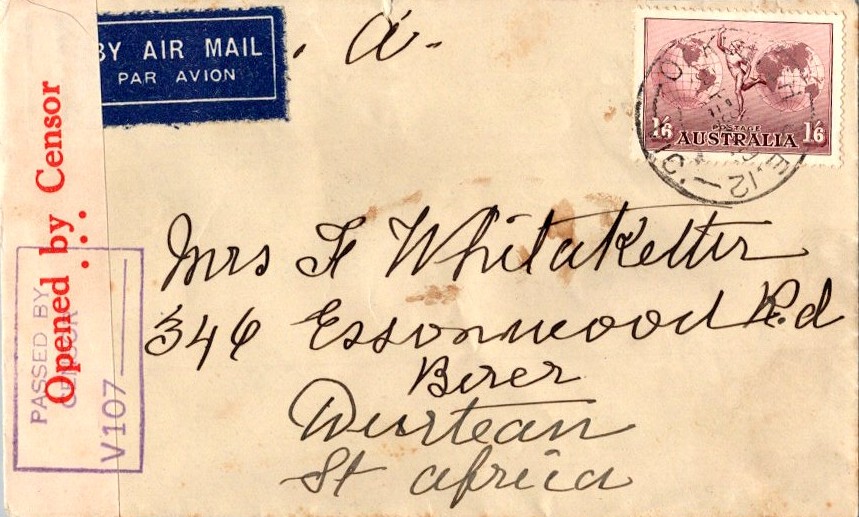 BY AIR MAIL
PAR AVION
. a.
POSTAGE
1/6 AUSTRALIA 1/6
Opened by Censor
PASSED BY
CENSOR
V107
Mrs F Whitaketter
346 Essonwood Rd
Berer
Durtean
St africa